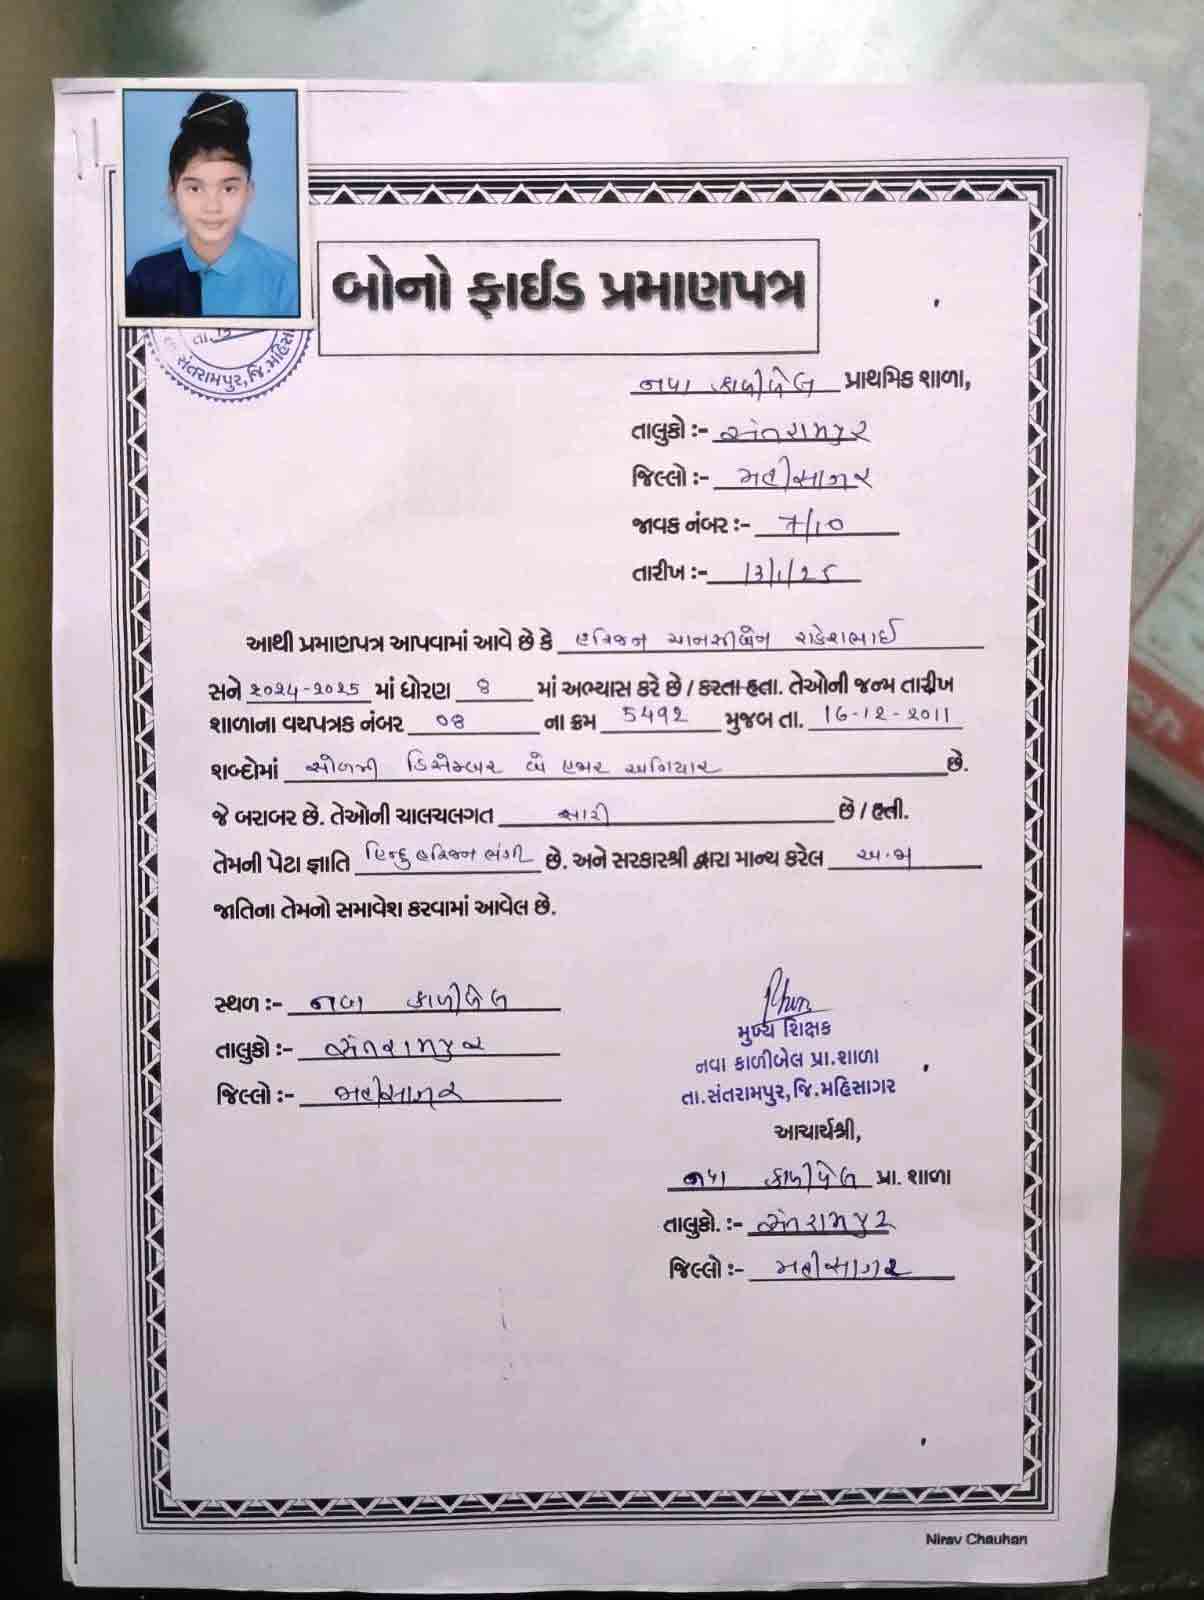 તા.
સંતરામપુર,જિ.મહિસા
બોનો ફાઈડ પ્રમાણપત્ર
નવા કાળીબેલ પ્રાથમિક શાળા,
તાલુકો :- સંતરામપુર
જિલ્લો :- મહીસાગર
જાવક નંબર :- 7/10
તારીખ :- 13/1/25
આથી પ્રમાણપત્ર આપવામાં આવે છે કે હરિજન માનસીબેન રાકેશભાઈ
સને ૨૦૨૪-૨૦૨૫ માં ધોરણ 8 માં અભ્યાસ કરે છે / કરતા હતા. તેઓની જન્મ તારીખ
શાળાના વયપત્રક નંબર 08 ના ક્રમ 5492 મુજબ તા. 16-12-2011
શબ્દોમાં સોળમી ડિસેમ્બર બે હજાર અગિયાર છે.
જે બરાબર છે. તેઓની ચાલચલગત સારી છે / હતી.
તેમની પેટા જ્ઞાતિ હિન્દુ હરિજન ભંગી છે. અને સરકારશ્રી દ્વારા માન્ય કરેલ અ.જા
જાતિના તેમનો સમાવેશ કરવામાં આવેલ છે.
સ્થળ :- નવા કાળીબેલ
તાલુકો :- સંતરામપુર
જિલ્લો :- મહીસાગર
મુખ્ય શિક્ષક
નવા કાળીબેલ પ્રા.શાળા
તા.સંતરામપુર,જિ.મહિસાગર
આચાર્યશ્રી,
નવા કાળીબેલ પ્રા. શાળા
તાલુકો. :- સંતરામપુર
જિલ્લો :- મહીસાગર
Nirav Chauhan